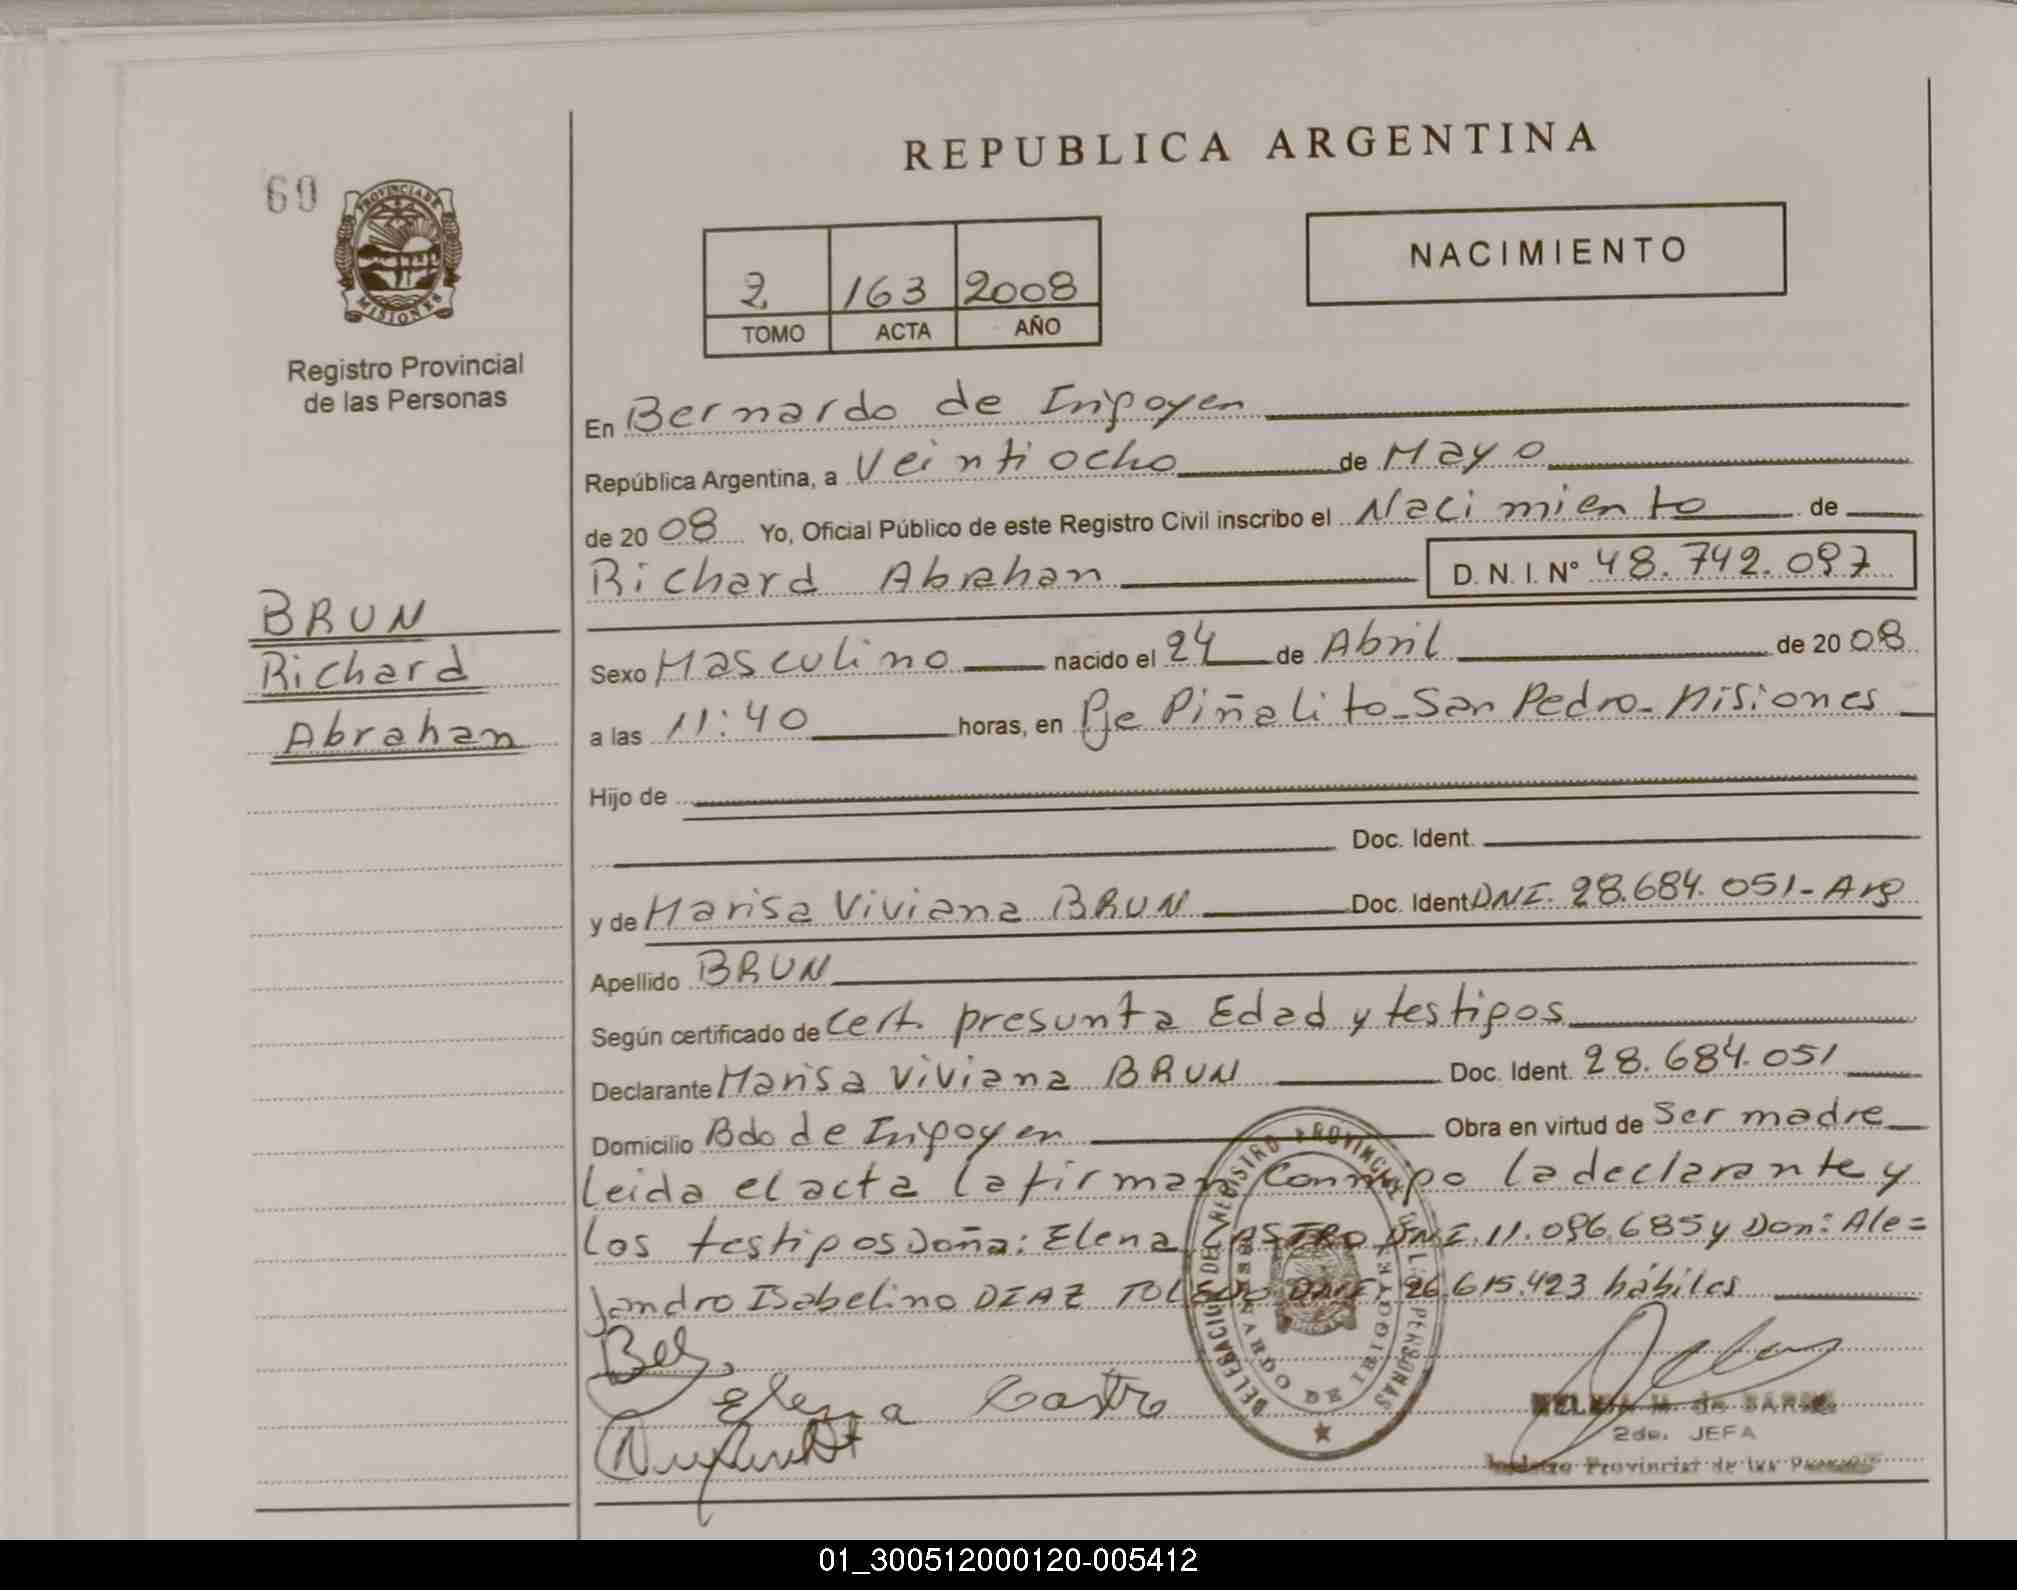 REPUBLICA ARGENTINA
60
PROVINCIA DE
MISIONES
Registro Provincial
de las Personas
2 163 2008
TOMO ACTA AÑO
NACIMIENTO
En Bernardo de Irigoyen
República Argentina, a Veintiocho de Mayo
de 2008 Yo, Oficial Público de este Registro Civil inscribo el Nacimiento de
Richard Abrahan D. N. I. N° 48.742.097
BRUN
Richard
Abrahan
Sexo Masculino nacido el 24 de Abril de 2008
a las 11:40 horas, en Pje Piñalito-San Pedro-Misiones
Hijo de
Doc. Ident.
y de Marisa Viviana BRUN Doc. Ident DNI. 28.684.051-Arg
Apellido BRUN
Según certificado de Cert. presunta Edad y testigos
Declarante Marisa Viviana BRUN Doc. Ident. 28.684.051
Domicilio Bdo de Irigoyen Obra en virtud de Ser madre
Leida el acta la firman conmigo la declarante y
los testigos Doña: Elena CASTRO DNI. 11.096.685 y Don: Ale=
jandro Isabelino DIAZ TOLEDO DNI. 26.615.423 hábiles
Elena Castro
DELEGACION DEL REGISTRO PROVINCIAL DE L. PERSONAS
BERNARDO DE IRIGOYEN
2da. JEFA
Provincial de las Personas
01_300512000120-005412